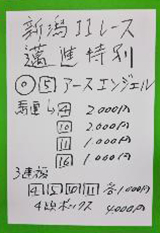 新潟11レース
邁進特別
◎ 5 アースエンジェル
馬連 4 2000円
10 2000円
11 1000円
16 1000円
3連複
4 5 10 11 各1000円
4頭ボックス 4000円